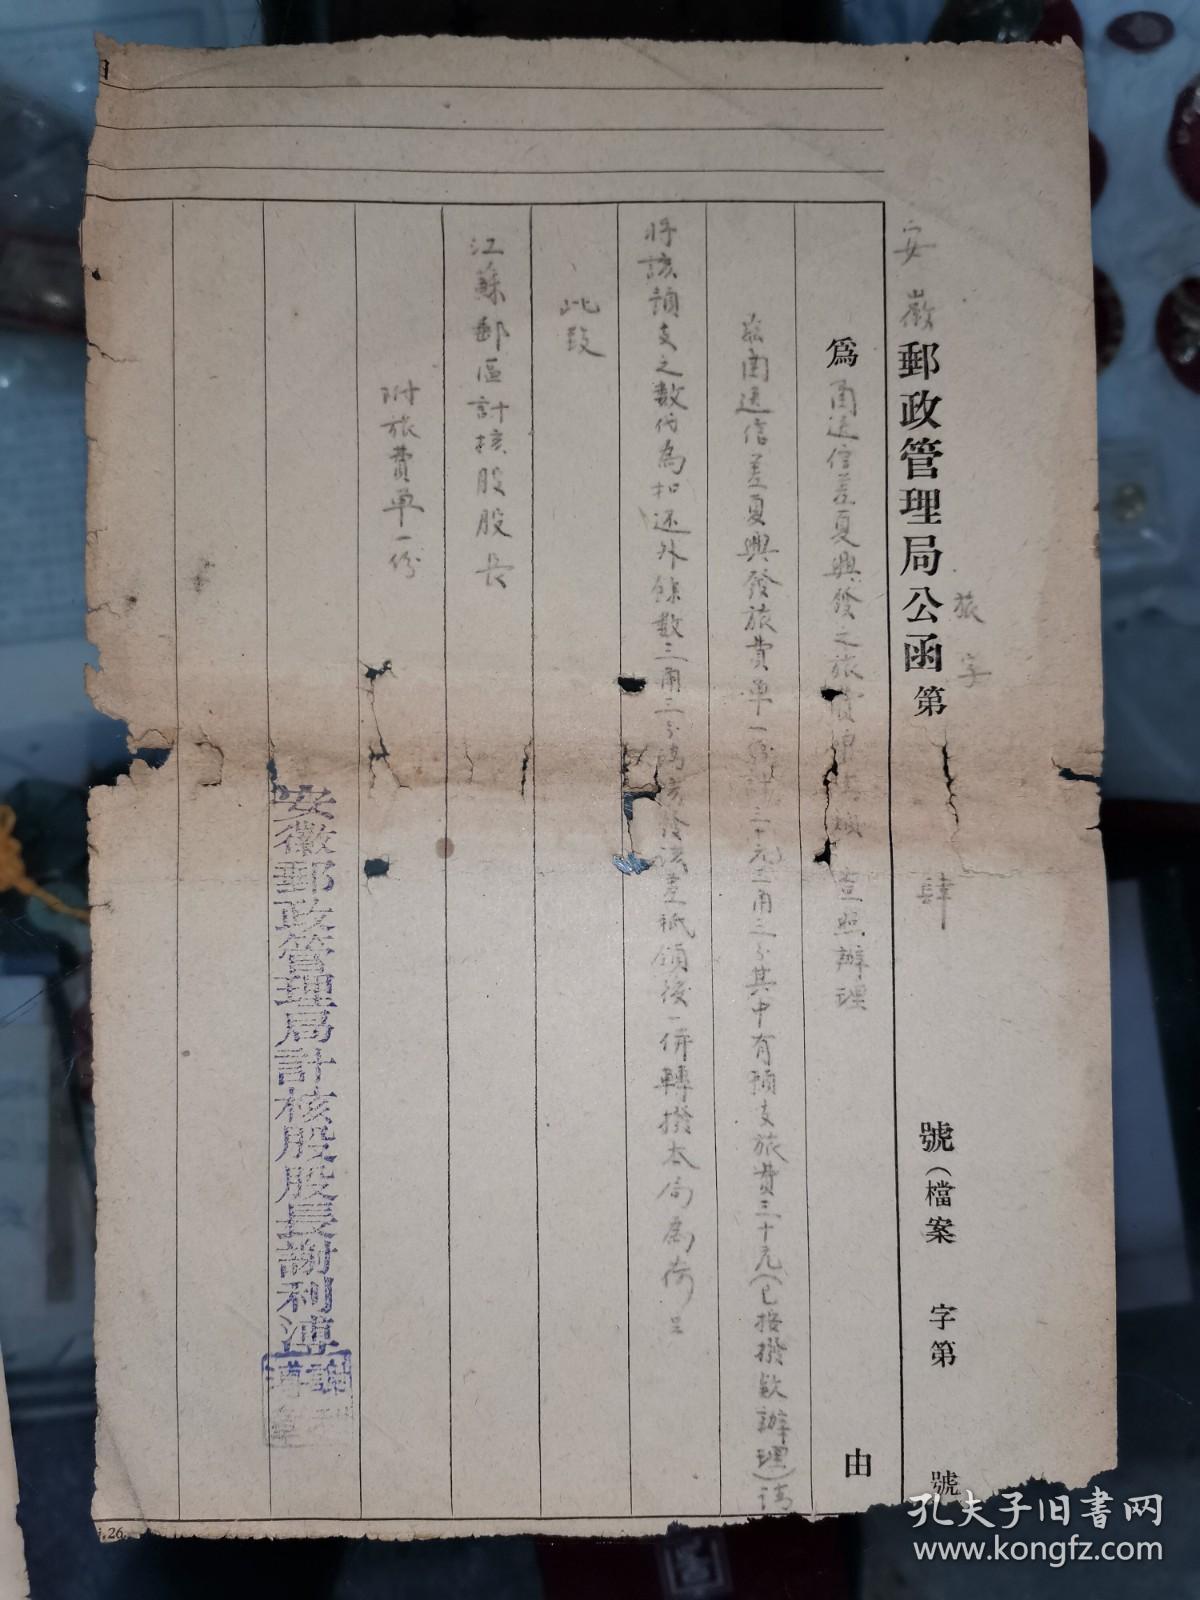 安徽郵政管理局公函 第 旅字 肆 號（檔案 字第 號
為 函送信差夏興發之旅費單 查照辦理 由
茲函送信差夏興發旅費單一份計三十元三角三分其中有預支旅費三十元（已按撥款辦理）請
將該預支之數份為扣還外餘數三角三分請核發該差祗領後一併轉撥本局為荷
此致
江蘇郵區計核股股長
附旅費單一份
安徽郵政管理局計核股股長謝利溥
26
孔夫子旧书网
www.kongfz.com